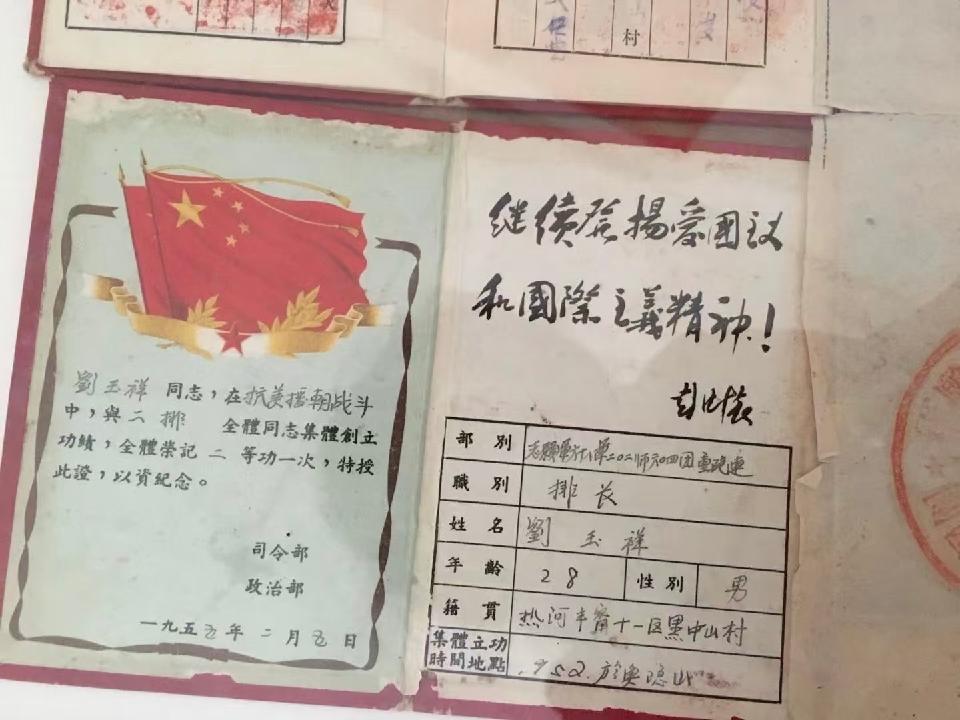 村
劉玉祥 同志，在抗美援朝战斗
中，與二排 全體同志集體創立
功績，全體榮记 二 等功一次，特授
此證，以資紀念。
司令部
政治部
一九五五年二月五日
继续發揚爱国主义
和國際主義精神！
彭德懷
部别
職别 排长
姓名 劉玉祥
年齡 28 性别 男
籍貫 热河丰宁十一区黑中山村
集體立功
時間地點